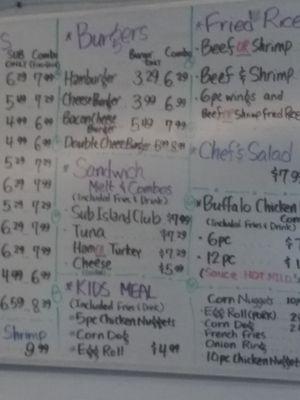 S
SUB Combo
6 29 7 99
5 49 7 29
4 99 6 99
4 99 6 99
5 29 7 29
6 29 7 99
5 29 7 29
6 29 7 99
6 29 7 99
4 99 6 99
6 59 8 29
Shrimp
9 99
* Burgers
Burger ONLY Combo
Hamburger 3 29 6 29
Cheese Burger 3 99 6 99
Bacon Cheese Burger 5 49 7 99
Double Cheese Burger 5 99 8 99
* Sandwich
Melt & Combos
(Included Fries & Drink)
Sub Island Club $7 99
Tuna $7 29
Ham or Turkey $7 29
Cheese $5 99
* KIDS MEAL
(Included Fries & Drink)
5pc Chicken Nuggets
Corn Dog
Egg Roll $4 99
* Fried Rice
Beef or Shrimp
Beef & Shrimp
6pc wings and
Beef or Shrimp Fried Rice
* Chef's Salad
$7 99
* Buffalo Chicken
(Included Fries & Drink)
6pc $7
12pc $1
(Sauce HOT MILD
Corn Nuggets 10p
Egg Roll (PORK) 2
Corn Dog 2
French Fries
Onion Ring
10pc Chicken Nuggets